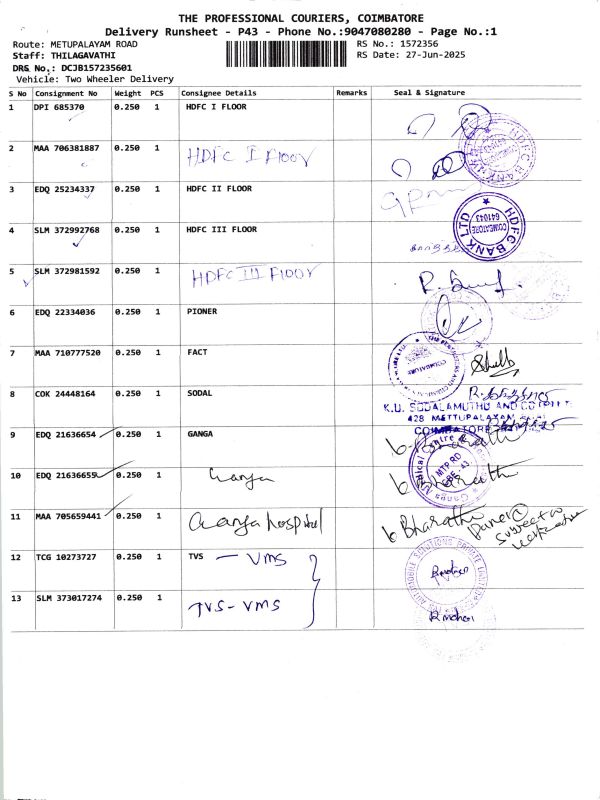 THE PROFESSIONAL COURIERS, COIMBATORE
Delivery Runsheet - P43 - Phone No.:9047080280 - Page No.:1
Route: METUPALAYAM ROAD
RS No.: 1572356
Staff: THILAGAVATHI
RS Date: 27-Jun-2025
DRS No.: DCJB157235601
Vehicle: Two Wheeler Delivery
S No Consignment No Weight PCS Consignee Details Remarks Seal & Signature
1 DPI 685370 0.250 1 HDFC I FLOOR
2 MAA 706381887 0.250 1 HDFC I Floor
HDFC BANK
3 EDQ 25234337 0.250 1 HDFC II FLOOR
4 SLM 372992768 0.250 1 HDFC III FLOOR
HDFC BANK LTD COIMBATORE 641043
5 SLM 372981592 0.250 1 HDFC III Floor
6 EDQ 22334036 0.250 1 PIONER
7 MAA 710777520 0.250 1 FACT
COIMBATORE
8 COK 24448164 0.250 1 SODAL
K.U. SODALAMUTHU AND CO
428 METTUPALAYAM
COIMBATORE
9 EDQ 21636654 0.250 1 GANGA
b. Bharathi
Ganga Medical Centre
MTP RD
CBE - 43
10 EDQ 21636655 0.250 1 Ganga
b Bharathi
11 MAA 705659441 0.250 1 Ganga hospital
b Bharathi
12 TCG 10273727 0.250 1 TVS - VMS
AUTOMOBILE SOLUTIONS PRIVATE LIMITED
13 SLM 373017274 0.250 1 TVS-VMS
R.mohan